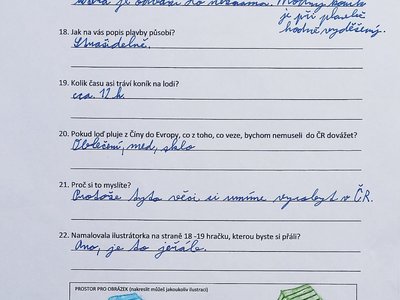 která je odváží do neznáma. Modrý koník
je při plavbě
hodně vyděšený.
18. Jak na vás popis plavby působí?
Strašidelně.
19. Kolik času asi tráví koník na lodi?
cca. 12 h.
20. Pokud loď pluje z Číny do Evropy, co z toho, co veze, bychom nemuseli do ČR dovážet?
Oblečení, med, sklo
21. Proč si to myslíte?
Protože tyto věci si umíme vyrobyt v ČR.
22. Namalovala ilustrátorka na straně 18 -19 hračku, kterou byste si přáli?
Ano, je to jeřáb.
PROSTOR PRO OBRÁZEK (nakreslit můžeš jakoukoliv ilustraci)